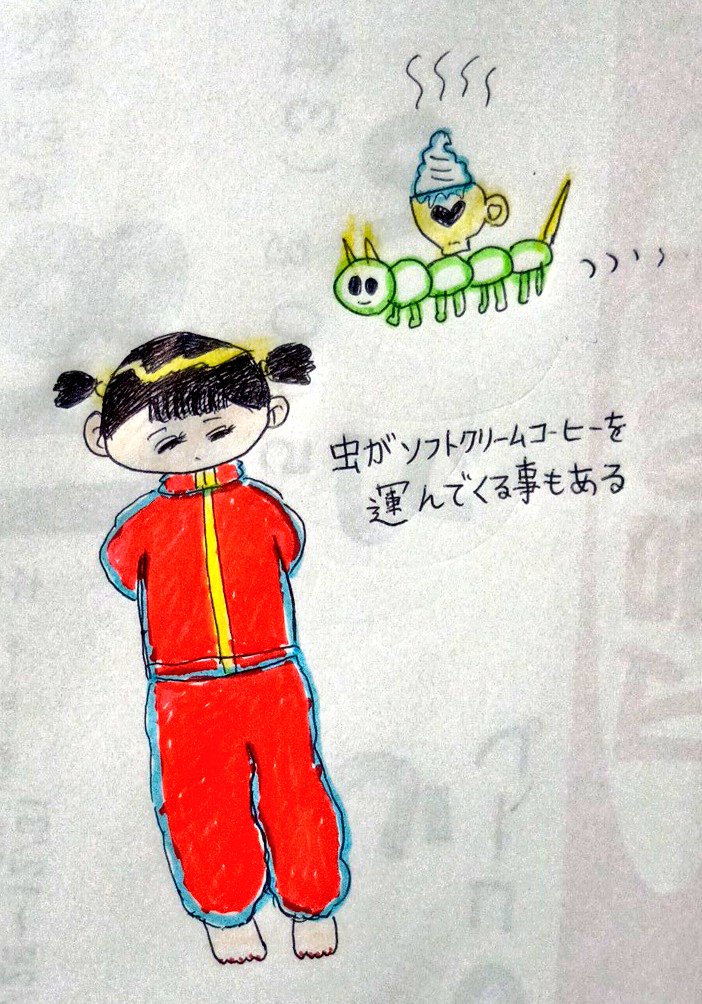 虫がソフトクリームコーヒーを
運んでくる事もある